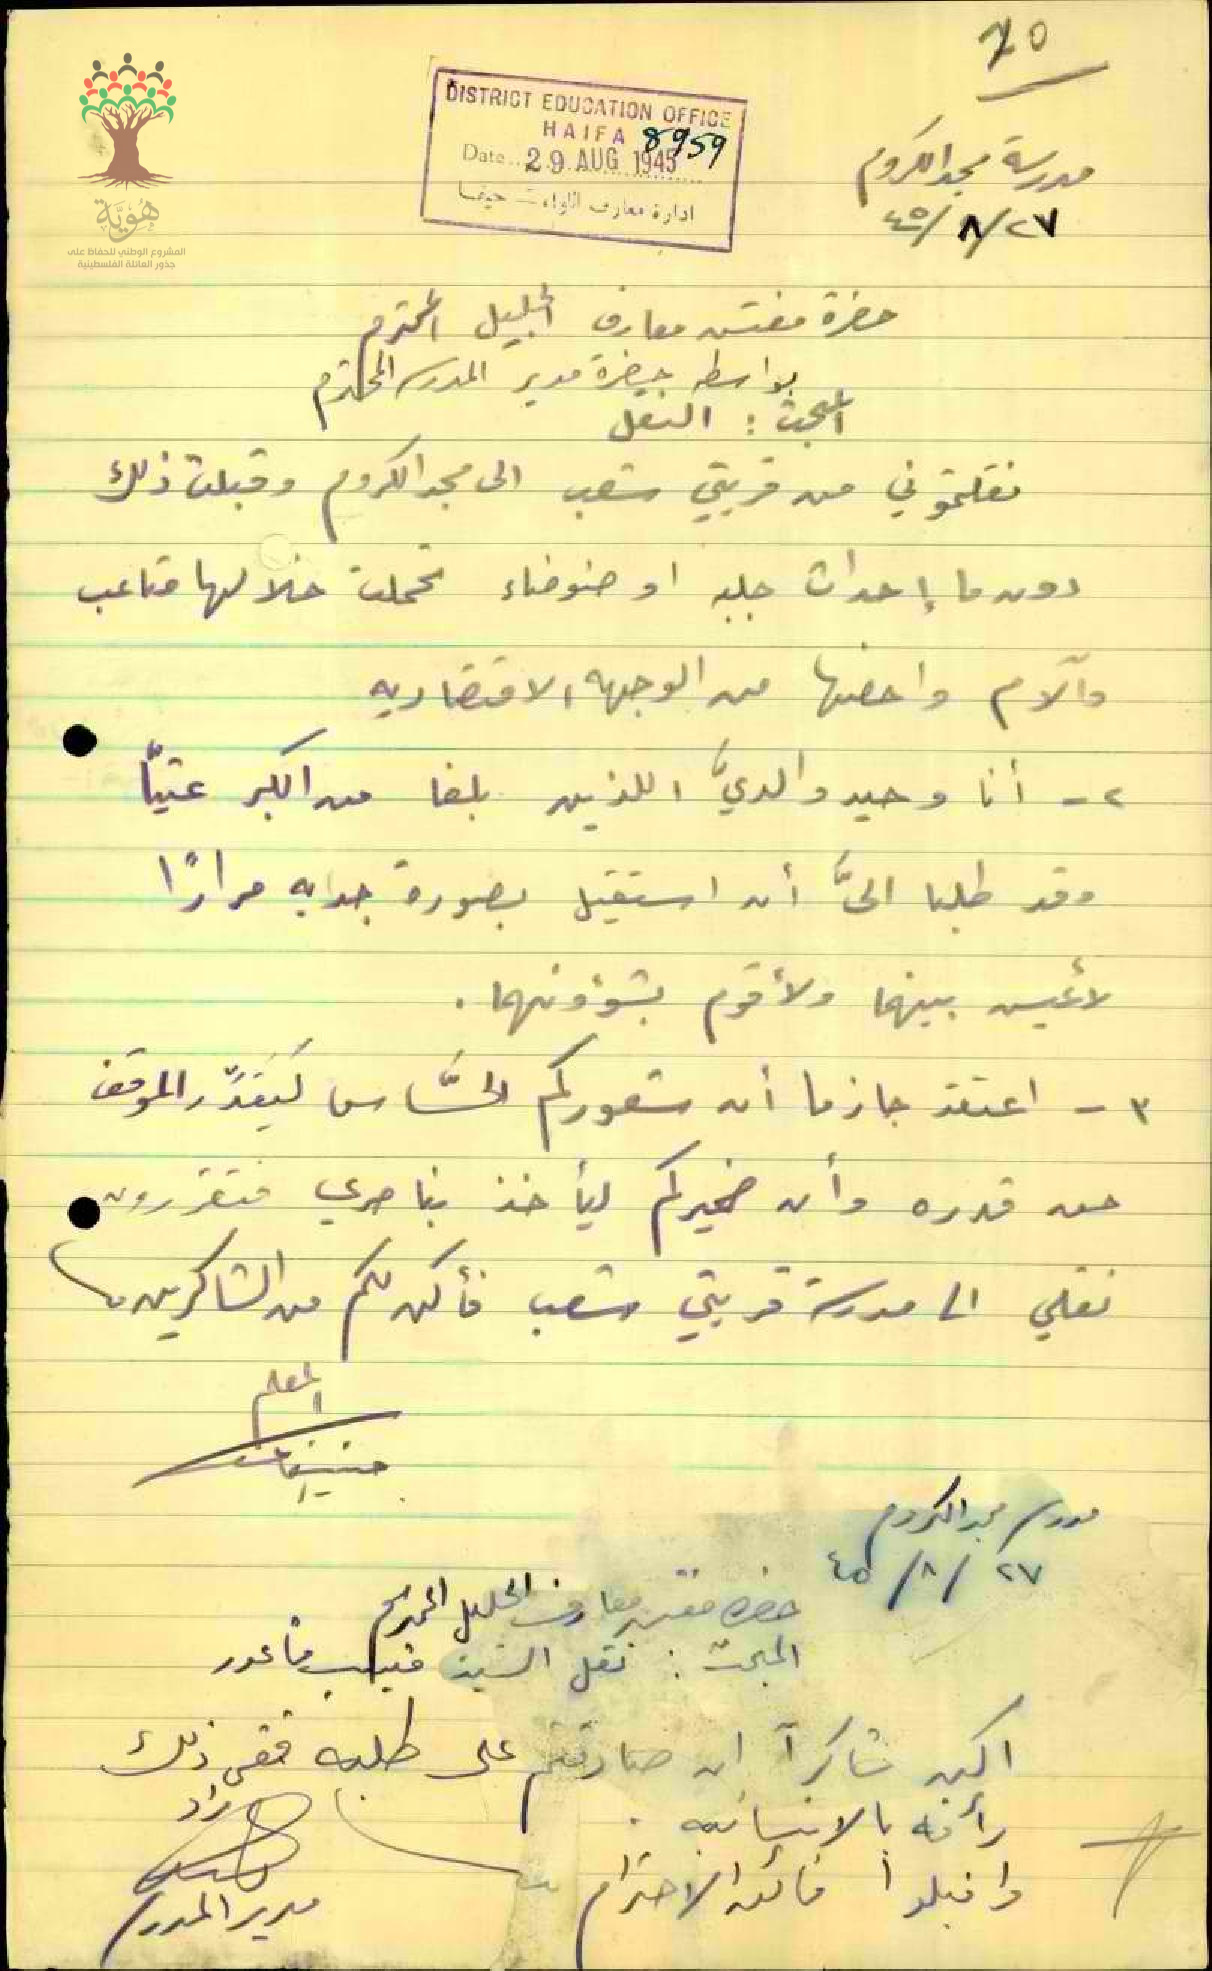 ٧٥
DISTRICT EDUCATION OFFICE
HAIFA 8959
Date 29 AUG 1945
ادارة معارف اللواء – حيفا
هُوِيَّة
المشروع الوطني للحفاظ على
جذور العائلة الفلسطينية
مدرسة مجد الكروم
٢٧/٨/٤٥
حضرة مفتش معارف الجليل المحترم
بواسطه حضرة مدير المدرسه المحترم
المبحث : النقل
نقلتموني من قريتي شعب الى مجد الكروم وقبلت ذلك
دون ما إحداث جلبه او ضوضاء تحملت خلالها متاعب
وآلام واخصها من الوجهه الاقتصاديه
٢ - أنا وحيد والديَّ اللذين بلغا من الكبر عتيّاً
وقد طلبا اليَّ أن استقيل بصورة جديه مراراً
لأعيش بينهما ولأقوم بشؤونهما .
٣ - اعتقد جازما أن شعوركم الحسَّاس ليُقدِّر الموقف
حق قدره وأن ضميركم ليأخذ بناصري فتقررون
نقلي الى مدرسة قريتي شعب فأكن لكم من الشاكرين
المعلم
مدرسة مجد الكروم
٢٧/٨/٤٥
حضرة مفتش معارف الجليل المحترم
المبحث : نقل السيد فاعور
اكن شاكراً ان صادقتم على طلبه ففي ذلك
رأفه بالانسانيه .
واقبلوا فائق الاحترام
مدير المدرسة